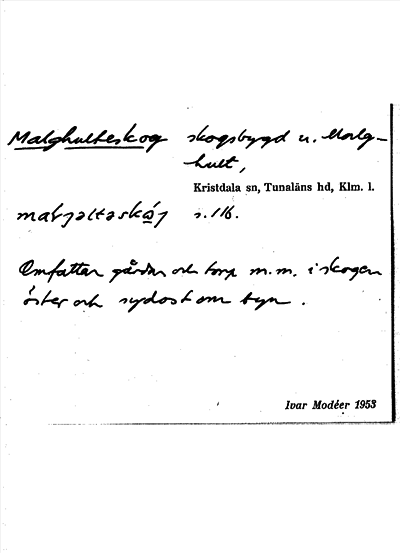 Malghulteskog skogsbygd u. Malg-
hult,
Kristdala sn, Tunaläns hd, Klm. l.
s. 116.
Omfattar gårdar och torp m.m. i skogen
öster och sydost om byn.
Ivar Modéer 1953